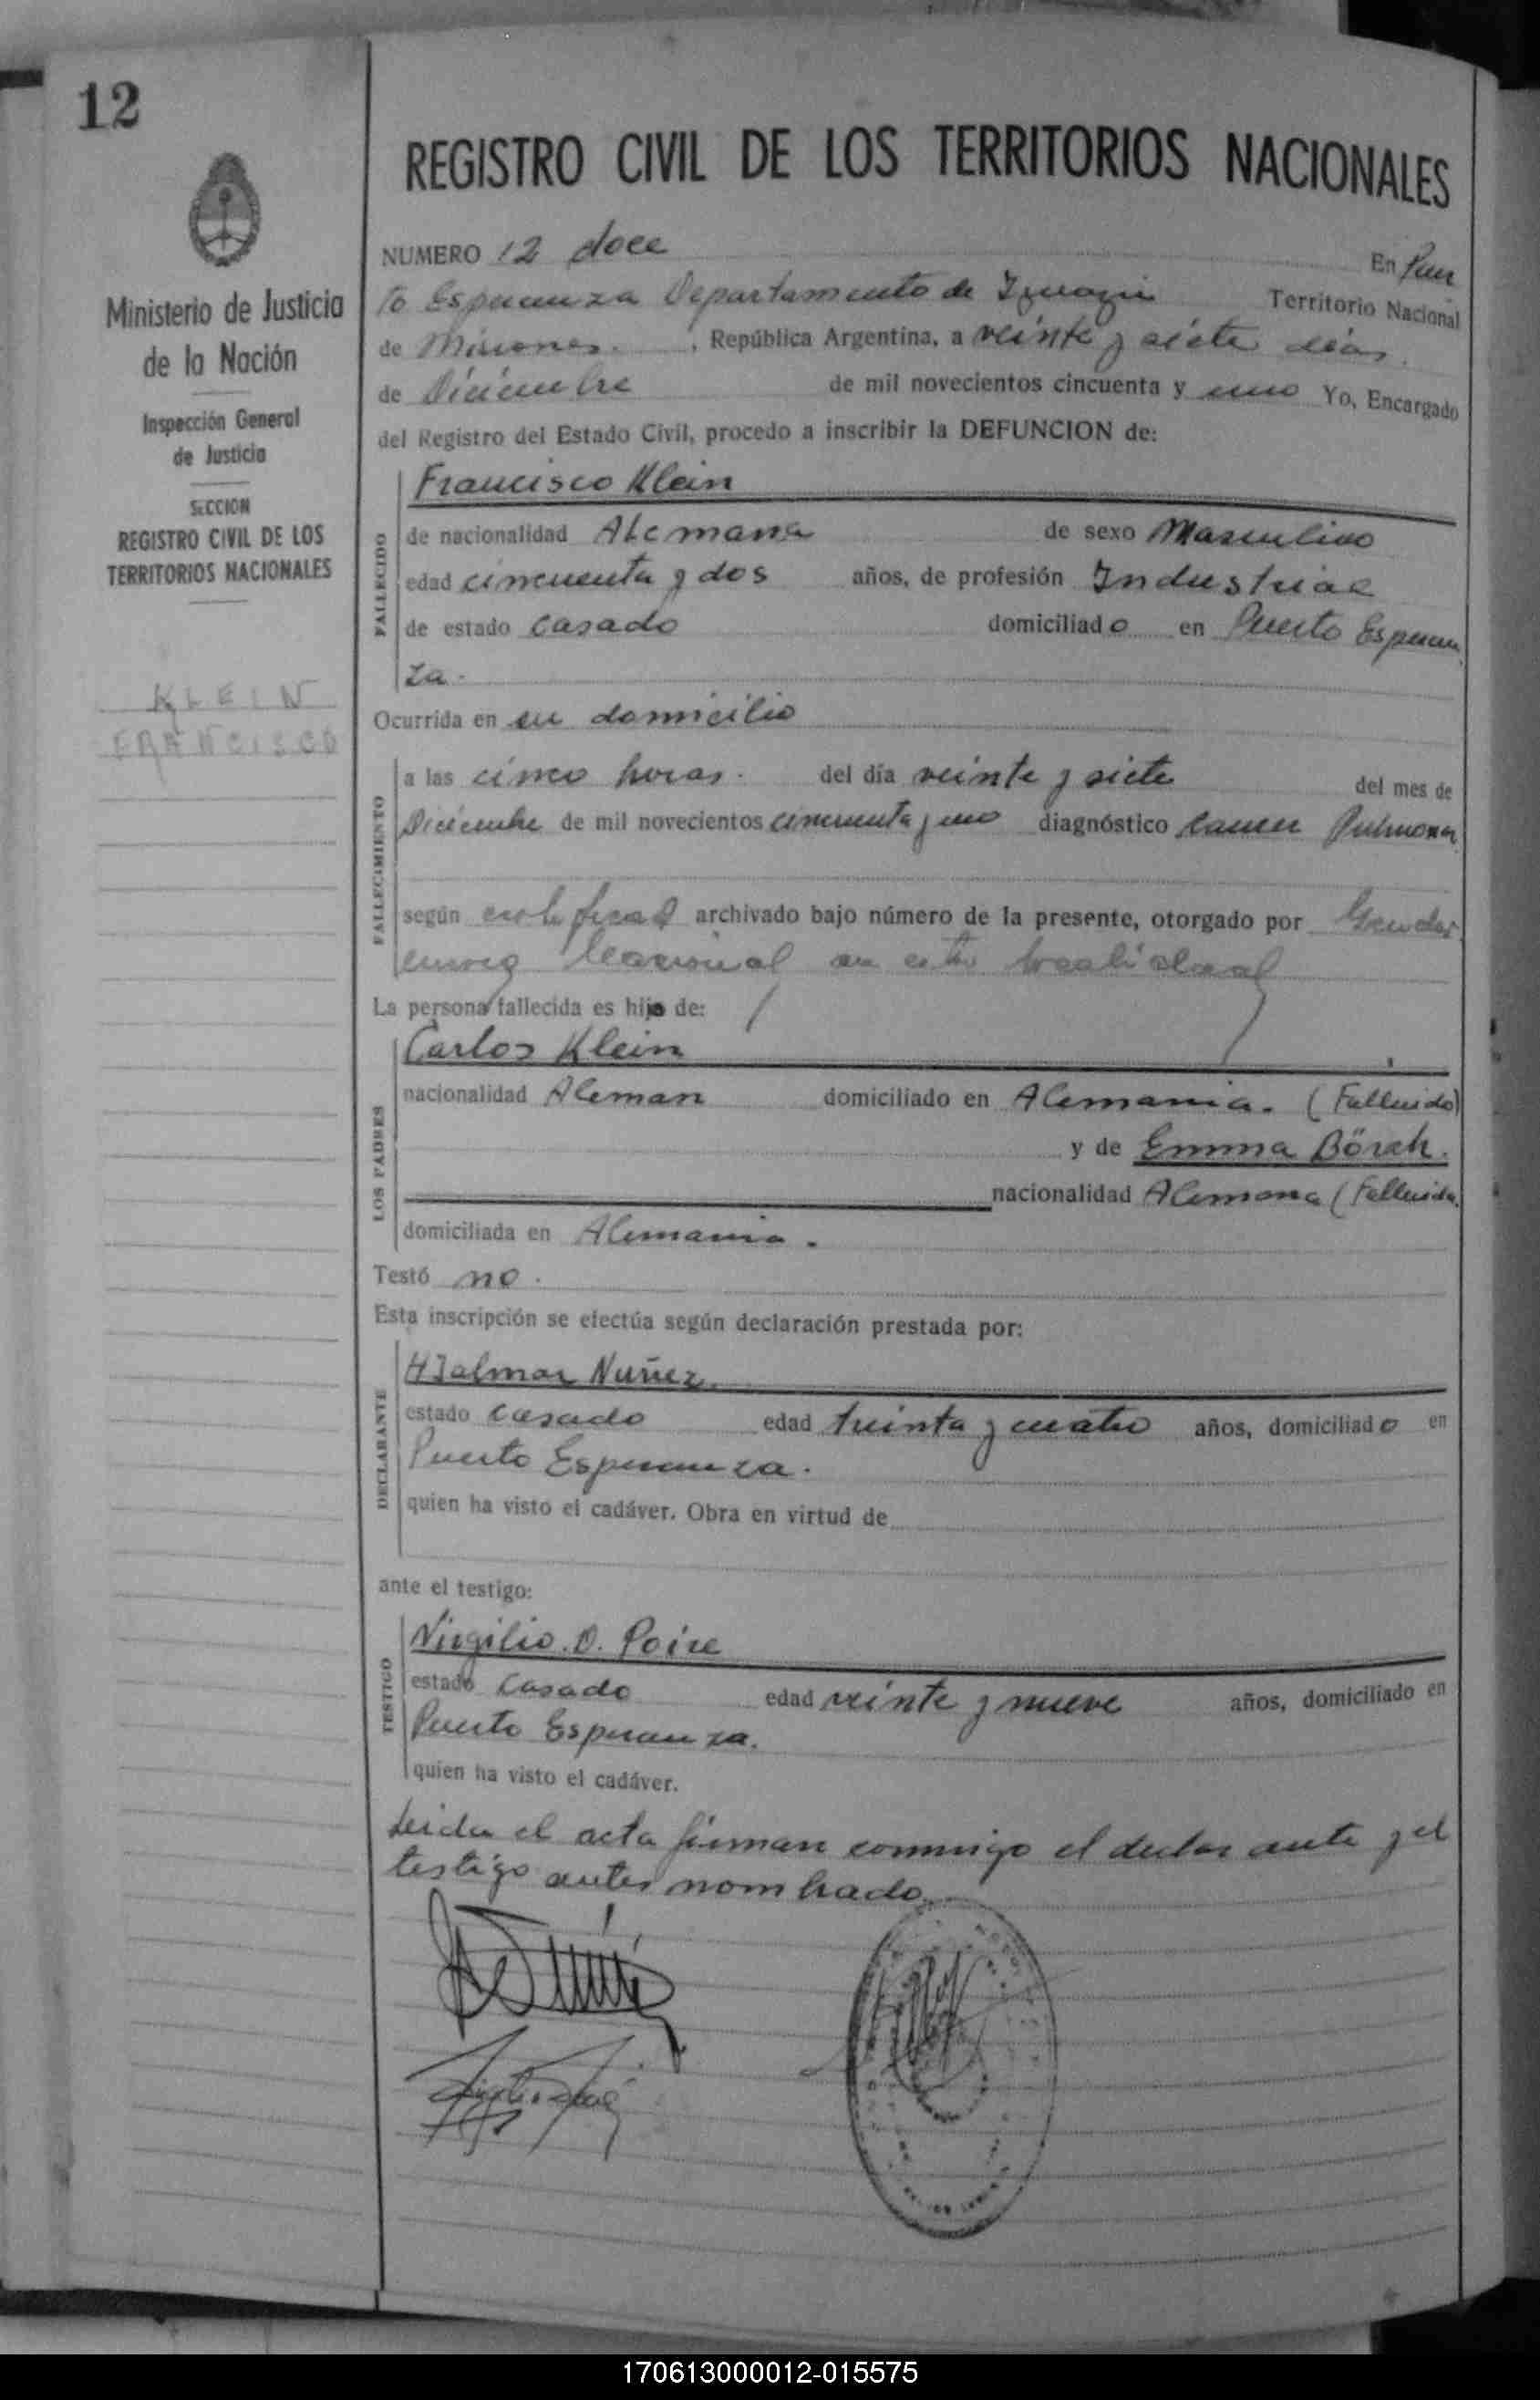 12
Ministerio de Justicia
de la Nación
Inspección General
de Justicia
SECCION
REGISTRO CIVIL DE LOS
TERRITORIOS NACIONALES
KLEIN
FRANCISCO
REGISTRO CIVIL DE LOS TERRITORIOS NACIONALES
NUMERO 12 doce En Puer
to Esperanza Departamento de Iguazú Territorio Nacional
de Misiones. , República Argentina, a veinte y siete días
de Diciembre de mil novecientos cincuenta y uno Yo, Encargado
del Registro del Estado Civil, procedo a inscribir la DEFUNCION de:
FALLECIDO
Francisco Klein
de nacionalidad Alemana de sexo Masculino
edad cincuenta y dos años, de profesión Industrial
de estado casado domiciliado en Puerto Esperan
za.
Ocurrida en su domicilio
FALLECIMIENTO
a las cinco horas. del día veinte y siete del mes de
Diciembre de mil novecientos cincuenta y uno diagnóstico Cancer Pulmonar
según archivado bajo número de la presente, otorgado por Gendar
meria Nacional en esta localidad
La persona fallecida es hijo de:
LOS PADRES
Carlos Klein
nacionalidad Aleman domiciliado en Alemania. (Fallecido)
y de Emma Börsch.
nacionalidad Alemana (Fallecida
domiciliada en Alemania.
Testó no.
Esta inscripción se efectúa según declaración prestada por:
DECLARANTE
HJalmar Nuñez.
estado casado edad treinta y cuatro años, domiciliado en
Puerto Esperanza.
quien ha visto el cadáver. Obra en virtud de
ante el testigo:
TESTIGO
Virgilio. D. Poire
estado Casado edad veinte y nueve años, domiciliado en
Puerto Esperanza.
quien ha visto el cadáver.
Leida el acta firman conmigo el declarante y el
testigo antes nombrado.
170613000012-015575